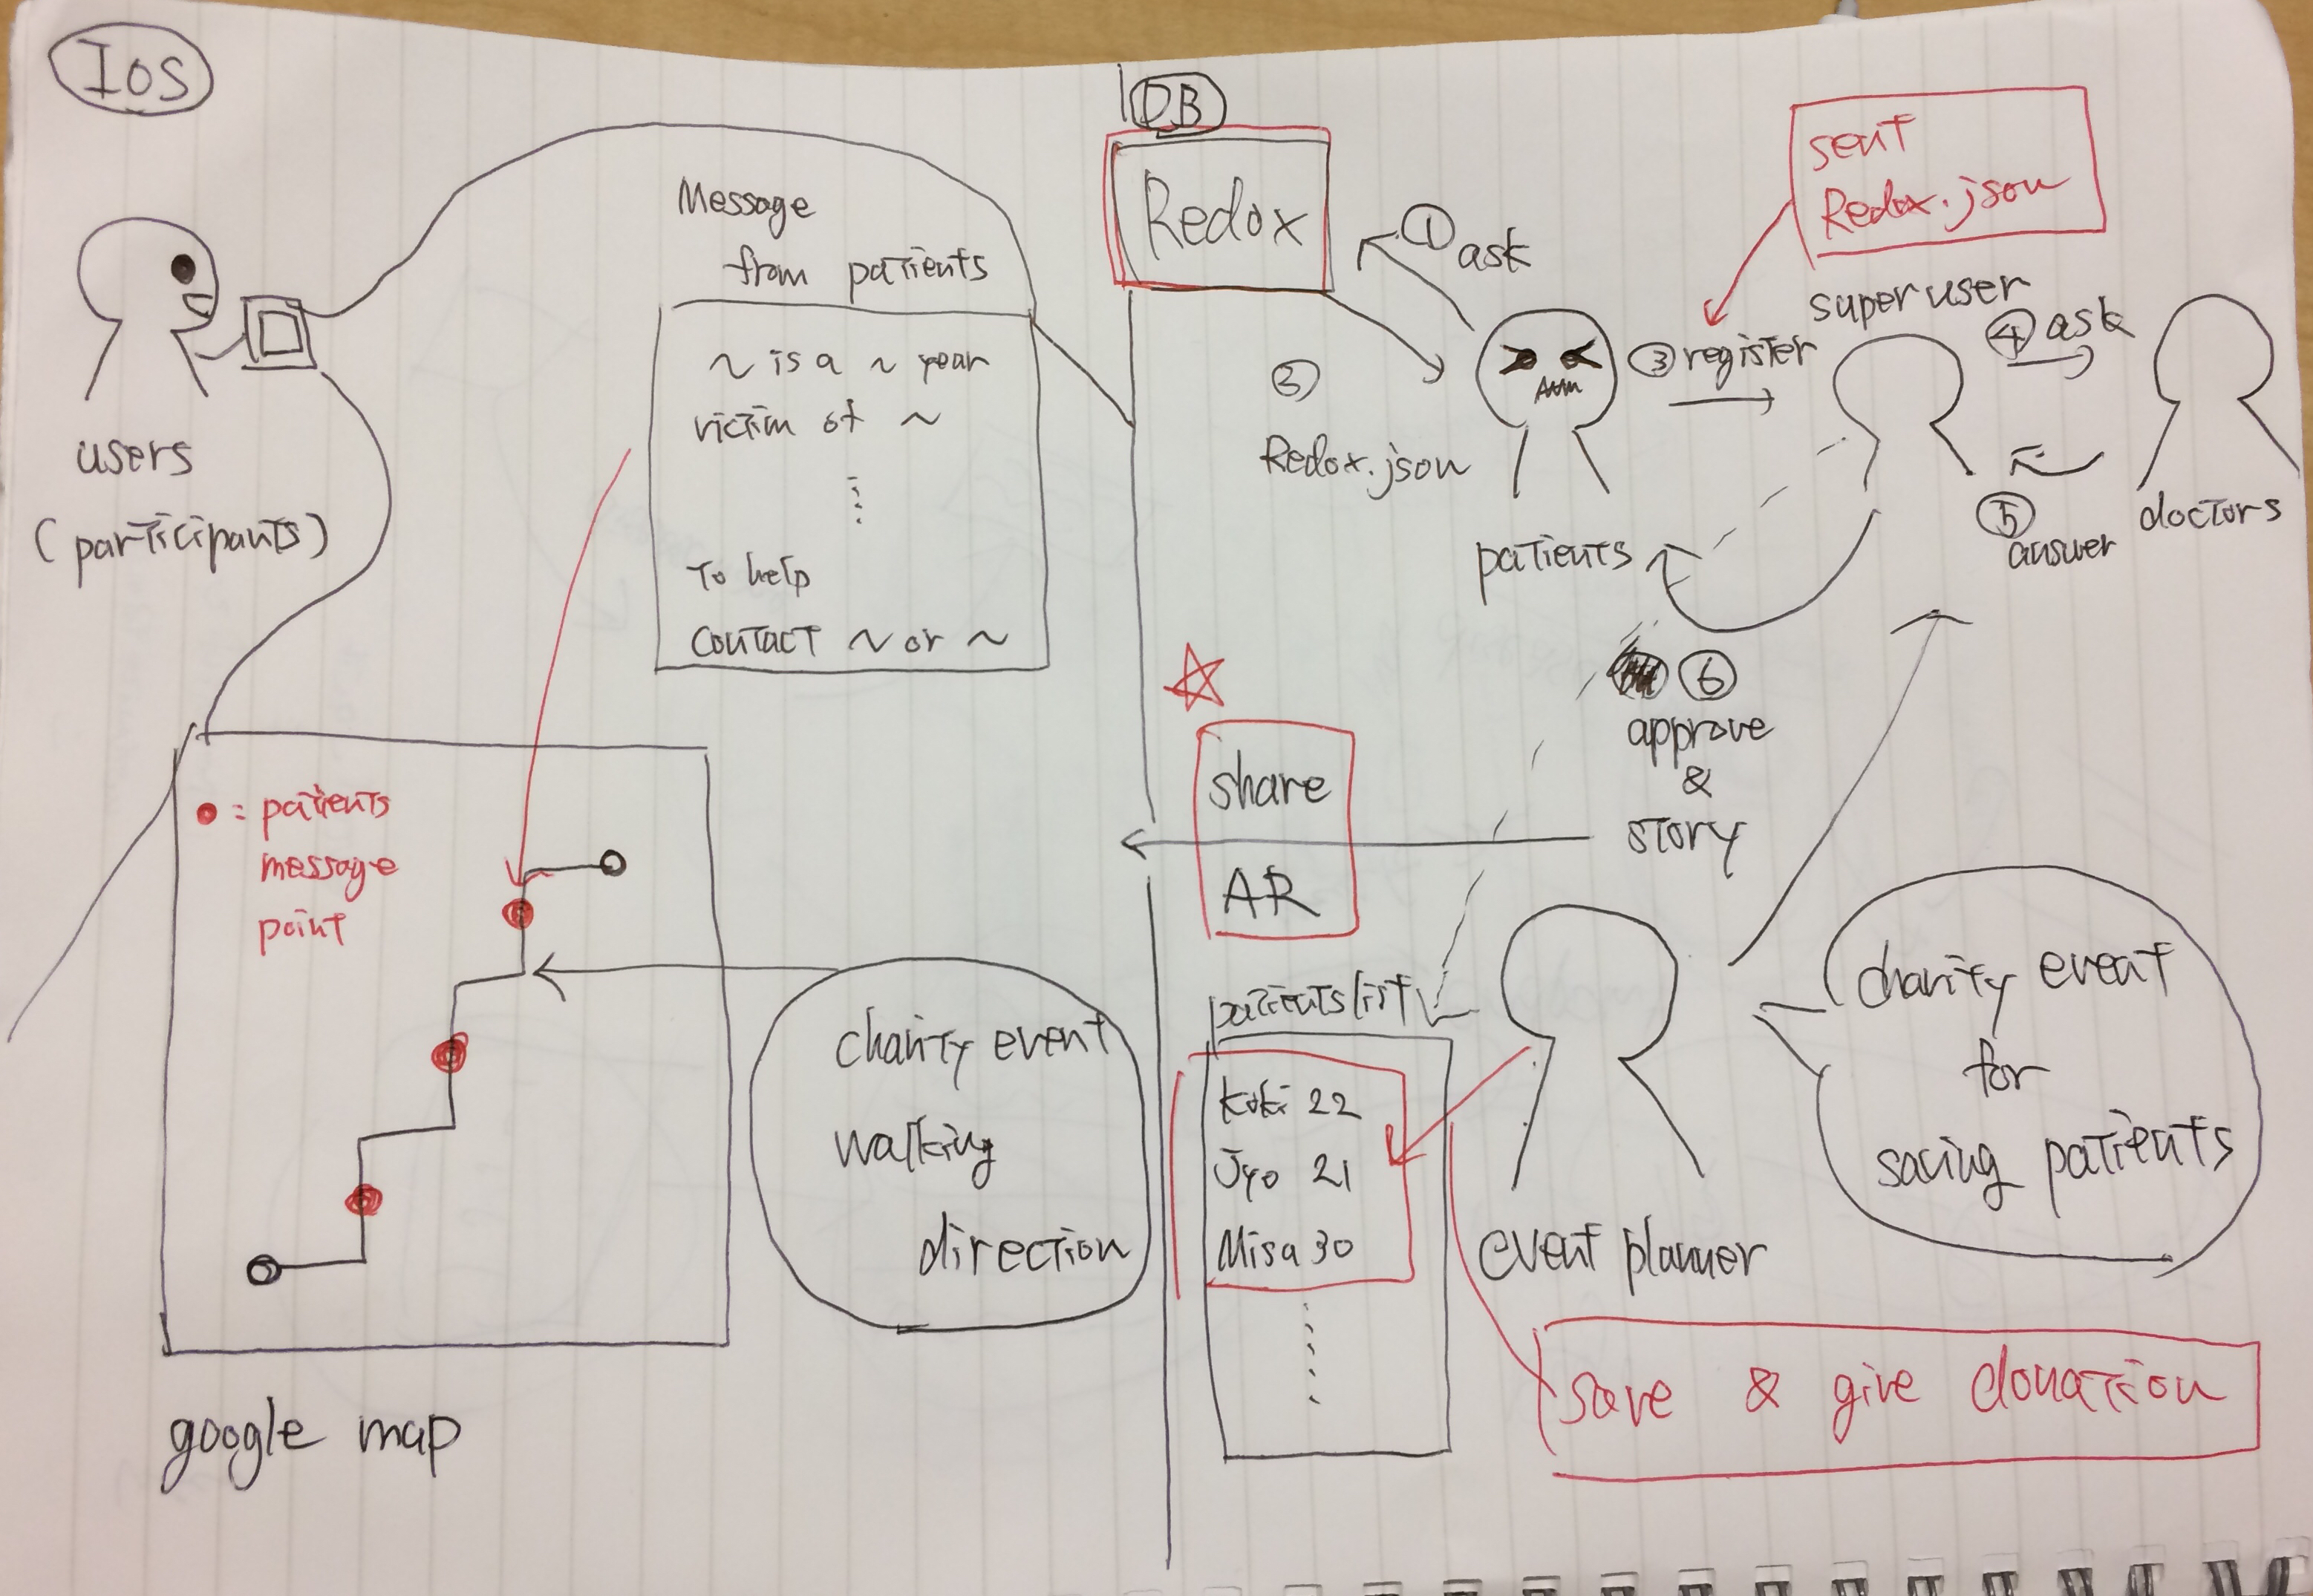 Ios
users
(participants)
Message
from patients
~ is a ~ year
victim of ~
To help
contact ~ or ~
● = patients
message
point
charity event
walking
direction
google map
DB
Redox
① ask
②
Redox.json
sent
Redox.json
③ register
superuser
④ ask
⑤
answer
doctors
patients
⑥
approve
&
story
share
AR
patients list
Koki 22
Jyo 21
Misa 30
event planner
charity event
for
saving patients
save & give donation